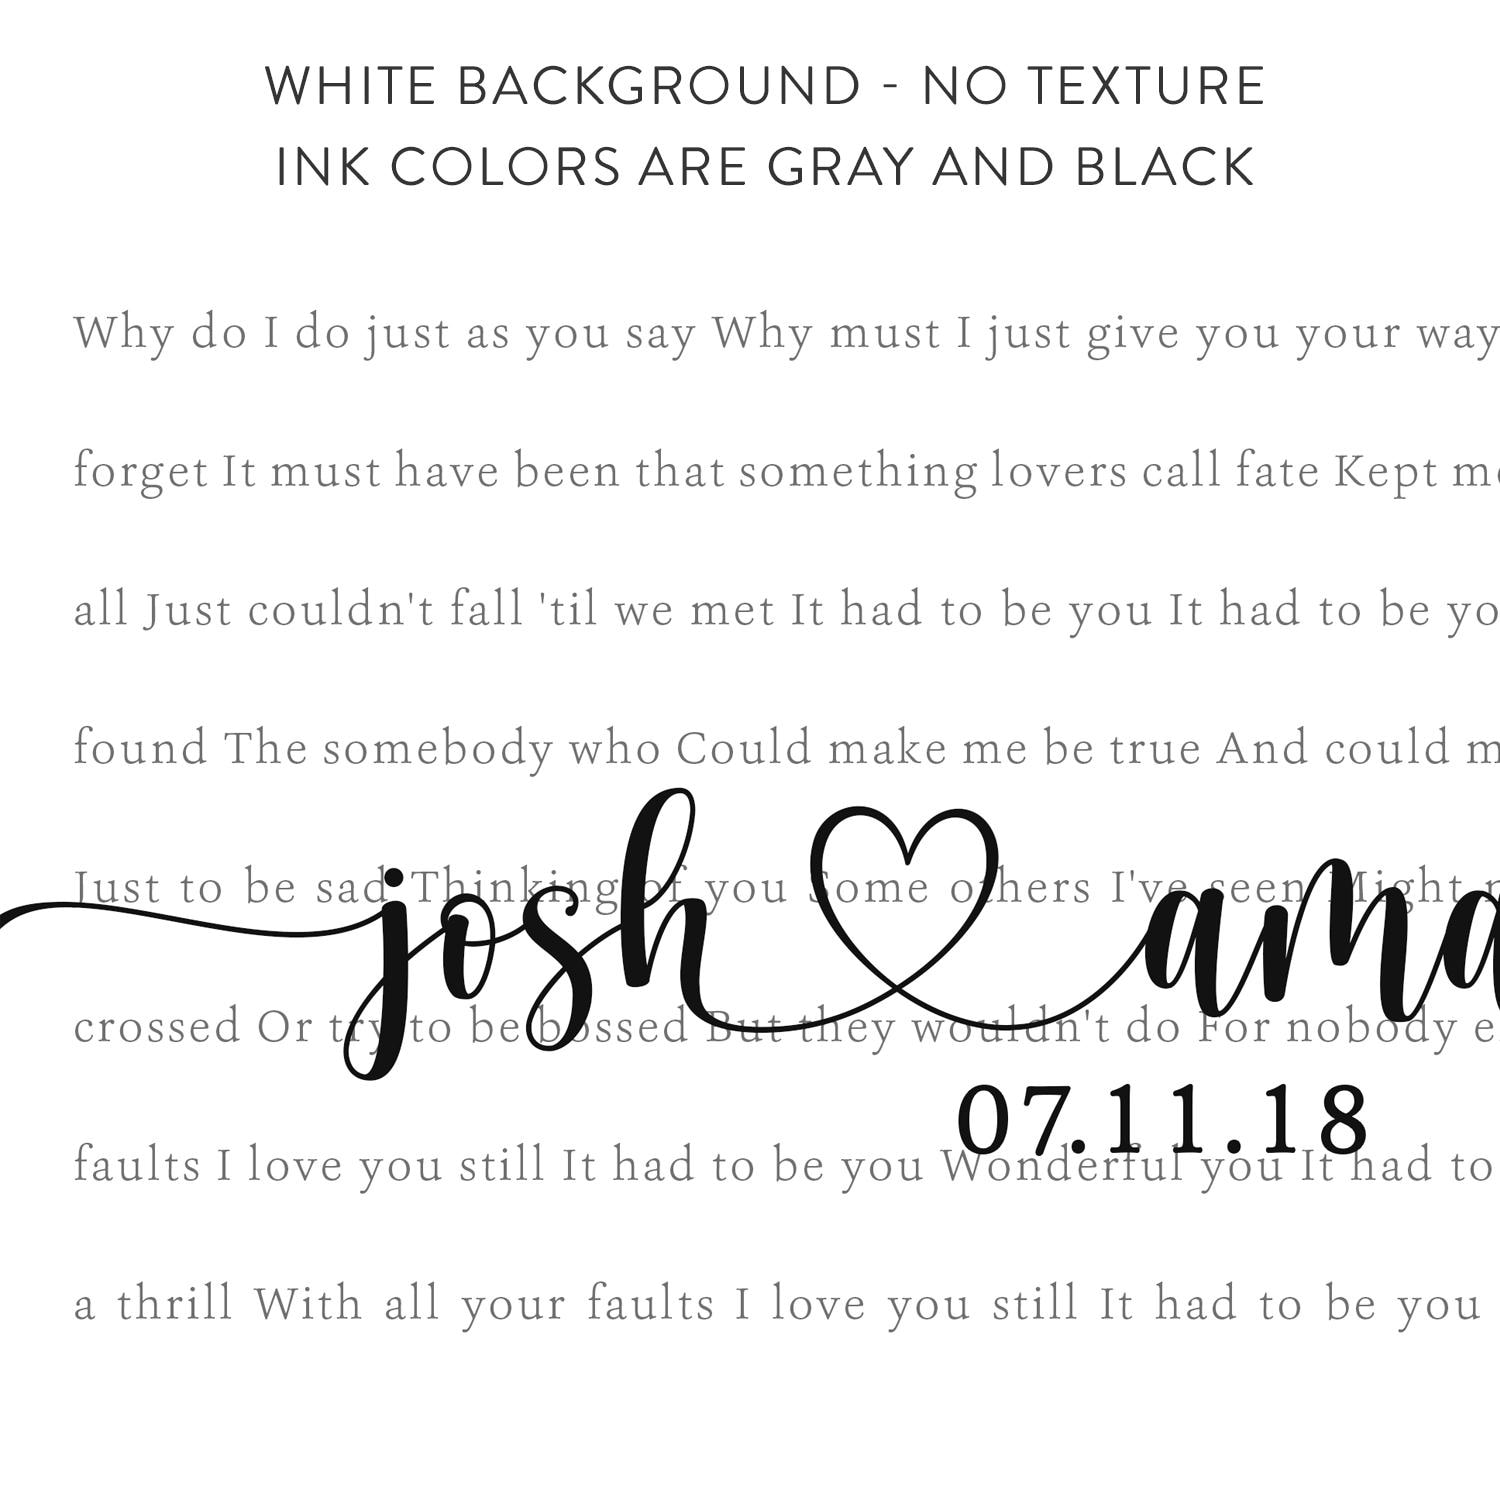 WHITE BACKGROUND - NO TEXTURE
INK COLORS ARE GRAY AND BLACK
Why do I do just as you say Why must I just give you your way
forget It must have been that something lovers call fate Kept me
all Just couldn't fall 'til we met It had to be you It had to be yo
found The somebody who Could make me be true And could m
Just to be sad Thinking of you Some others I've seen Might
josh ama
crossed Or try to be bossed But they wouldn't do For nobody e
07.11.18
faults I love you still It had to be you Wonderful you It had to
a thrill With all your faults I love you still It had to be you